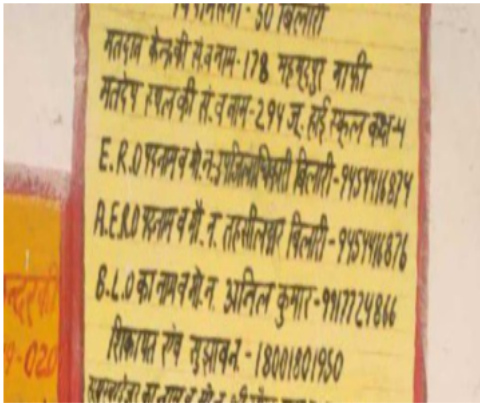 वि धानसभा - 30 बिलारी
मतदान केन्द्र की सं. व नाम - 178 महमूदपुर माफी
मतदेय स्थल की सं. व नाम - 294 जू. हाई स्कूल कक्ष-4
E.R.O पदनाम व मो. न. उपजिलाधिकारी बिलारी - 9454416874
A.E.R.O पदनाम व मो. न. तहसीलदार बिलारी - 9454416876
B.L.O का नाम व मो. न. अनिल कुमार - 9917724866
शिकायत एंव सुझाव न. - 18001801950
का नाम व मो. न.